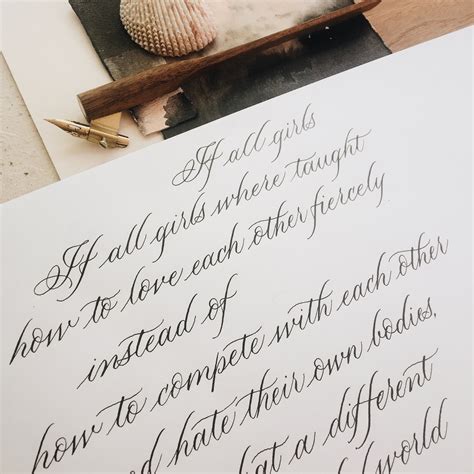 If all girls
If all girls where taught
how to love each other fiercely
instead of
how to compete with each other
and hate their own bodies,
what a different
world